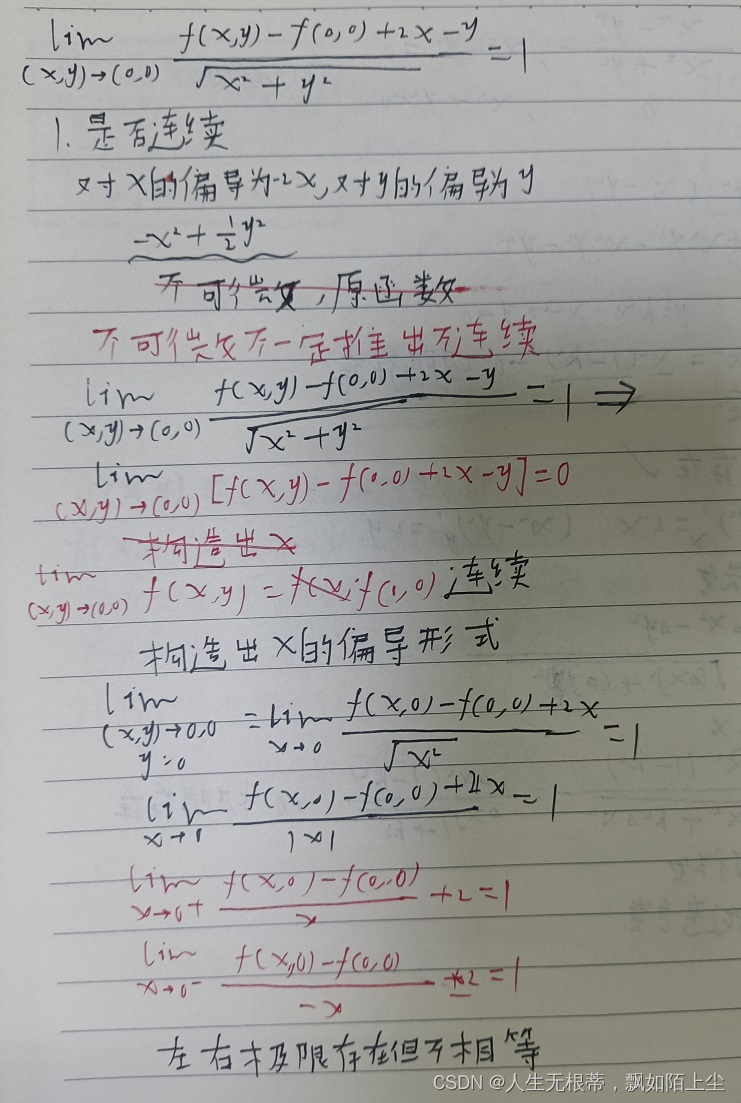 lim (x,y)→(0,0) f(x,y)-f(0,0)+2x-y / √x²+y² =1
1. 是否连续
对x的偏导为-2x,对y的偏导为y
-x²+½y²
不可微,原函数
不可微不一定推出不连续
lim (x,y)→(0,0) f(x,y)-f(0,0)+2x-y / √x²+y² =1⇒
lim (x,y)→(0,0) [f(x,y)-f(0,0)+2x-y]=0
构造出x
lim (x,y)→(0,0) f(x,y)=f(0,0)连续
构造出x的偏导形式
lim (x,y)→0,0 y=0 =lim x→0 f(x,0)-f(0,0)+2x / √x² =1
lim x→0 f(x,0)-f(0,0)+2x / |x| =1
lim x→0+ f(x,0)-f(0,0) / x +2=1
lim x→0- f(x,0)-f(0,0) / -x -2=1
左右极限存在但不相等
CSDN @人生无根蒂，飘如陌上尘